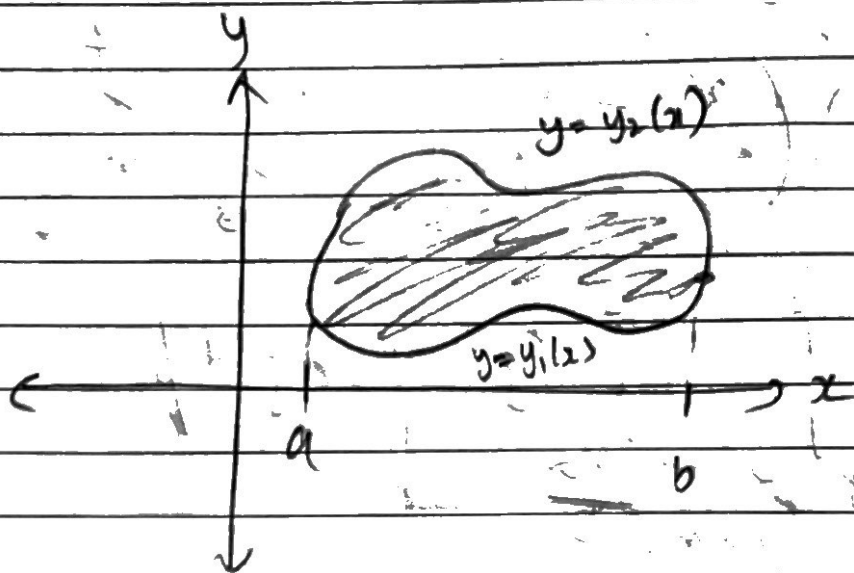 y
y = y₂(x)
y = y₁(x)
x
a
b